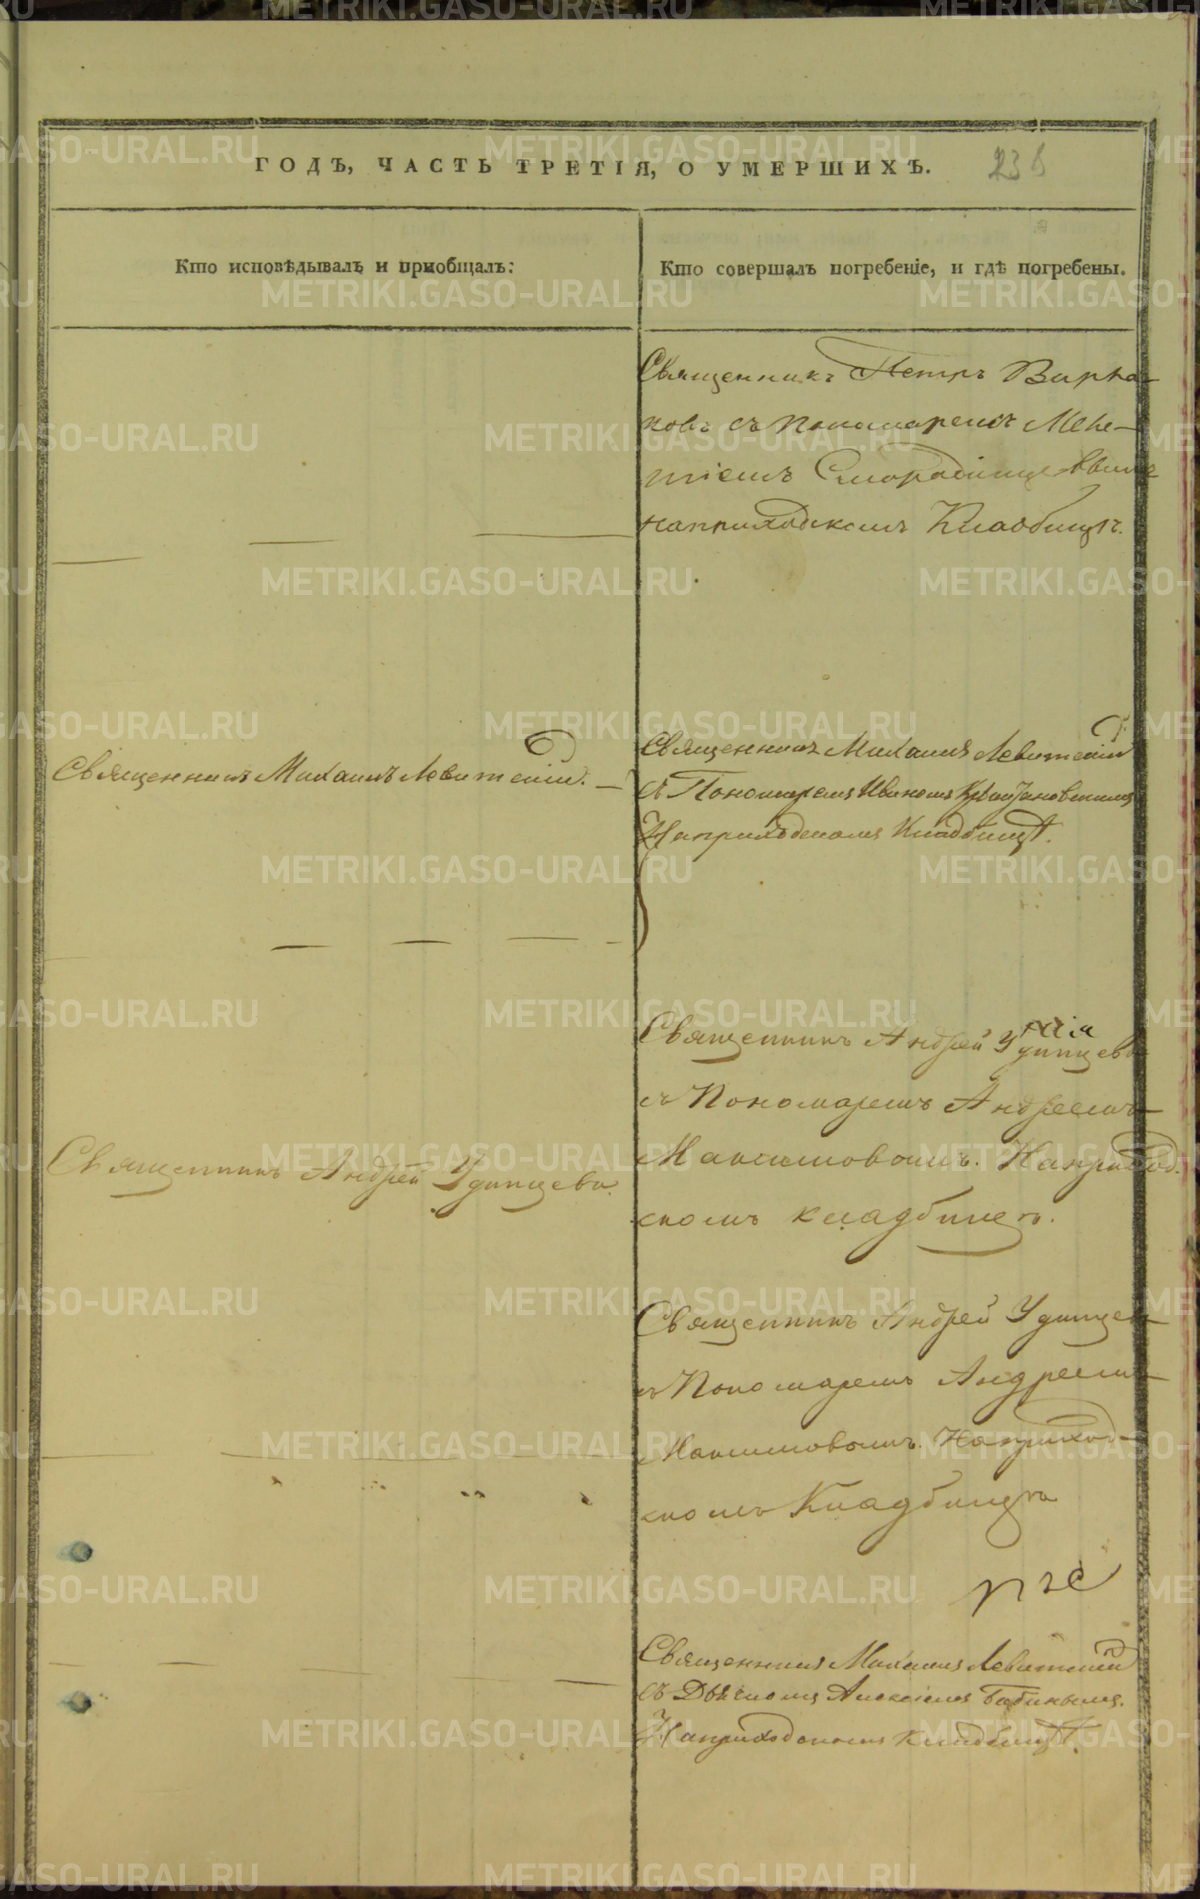 ГОДЪ, ЧАСТЬ ТРЕТІЯ, О УМЕРШИХЪ.
Кто исповѣдывалъ и пріобщалъ:
Кто совершалъ погребеніе, и гдѣ погребены.
Священникъ Петръ
съ пономаремъ
наприходскомъ Кладбищѣ.
Священникъ Михаилъ Левитскій.
Священникъ Михаилъ Левитскій
съ Пономаремъ Иваномъ
Наприходскомъ Кладбищѣ.
Священникъ Андрей Удинцевъ
съ Пономаремъ Андреемъ
Максимовымъ. Наприход.
скомъ кладбищѣ.
Священникъ Андрей Удинцевъ.
Священникъ Андрей Удинцевъ
съ Пономаремъ Андреемъ
Максимовымъ. Наприход-
скомъ Кладбищѣ
Священникъ Михаилъ Левитскій
съ Дьячкомъ Алексіемъ Бабинымъ.
Наприходскомъ кладбищѣ.
METRIKI.GASO-URAL.RU